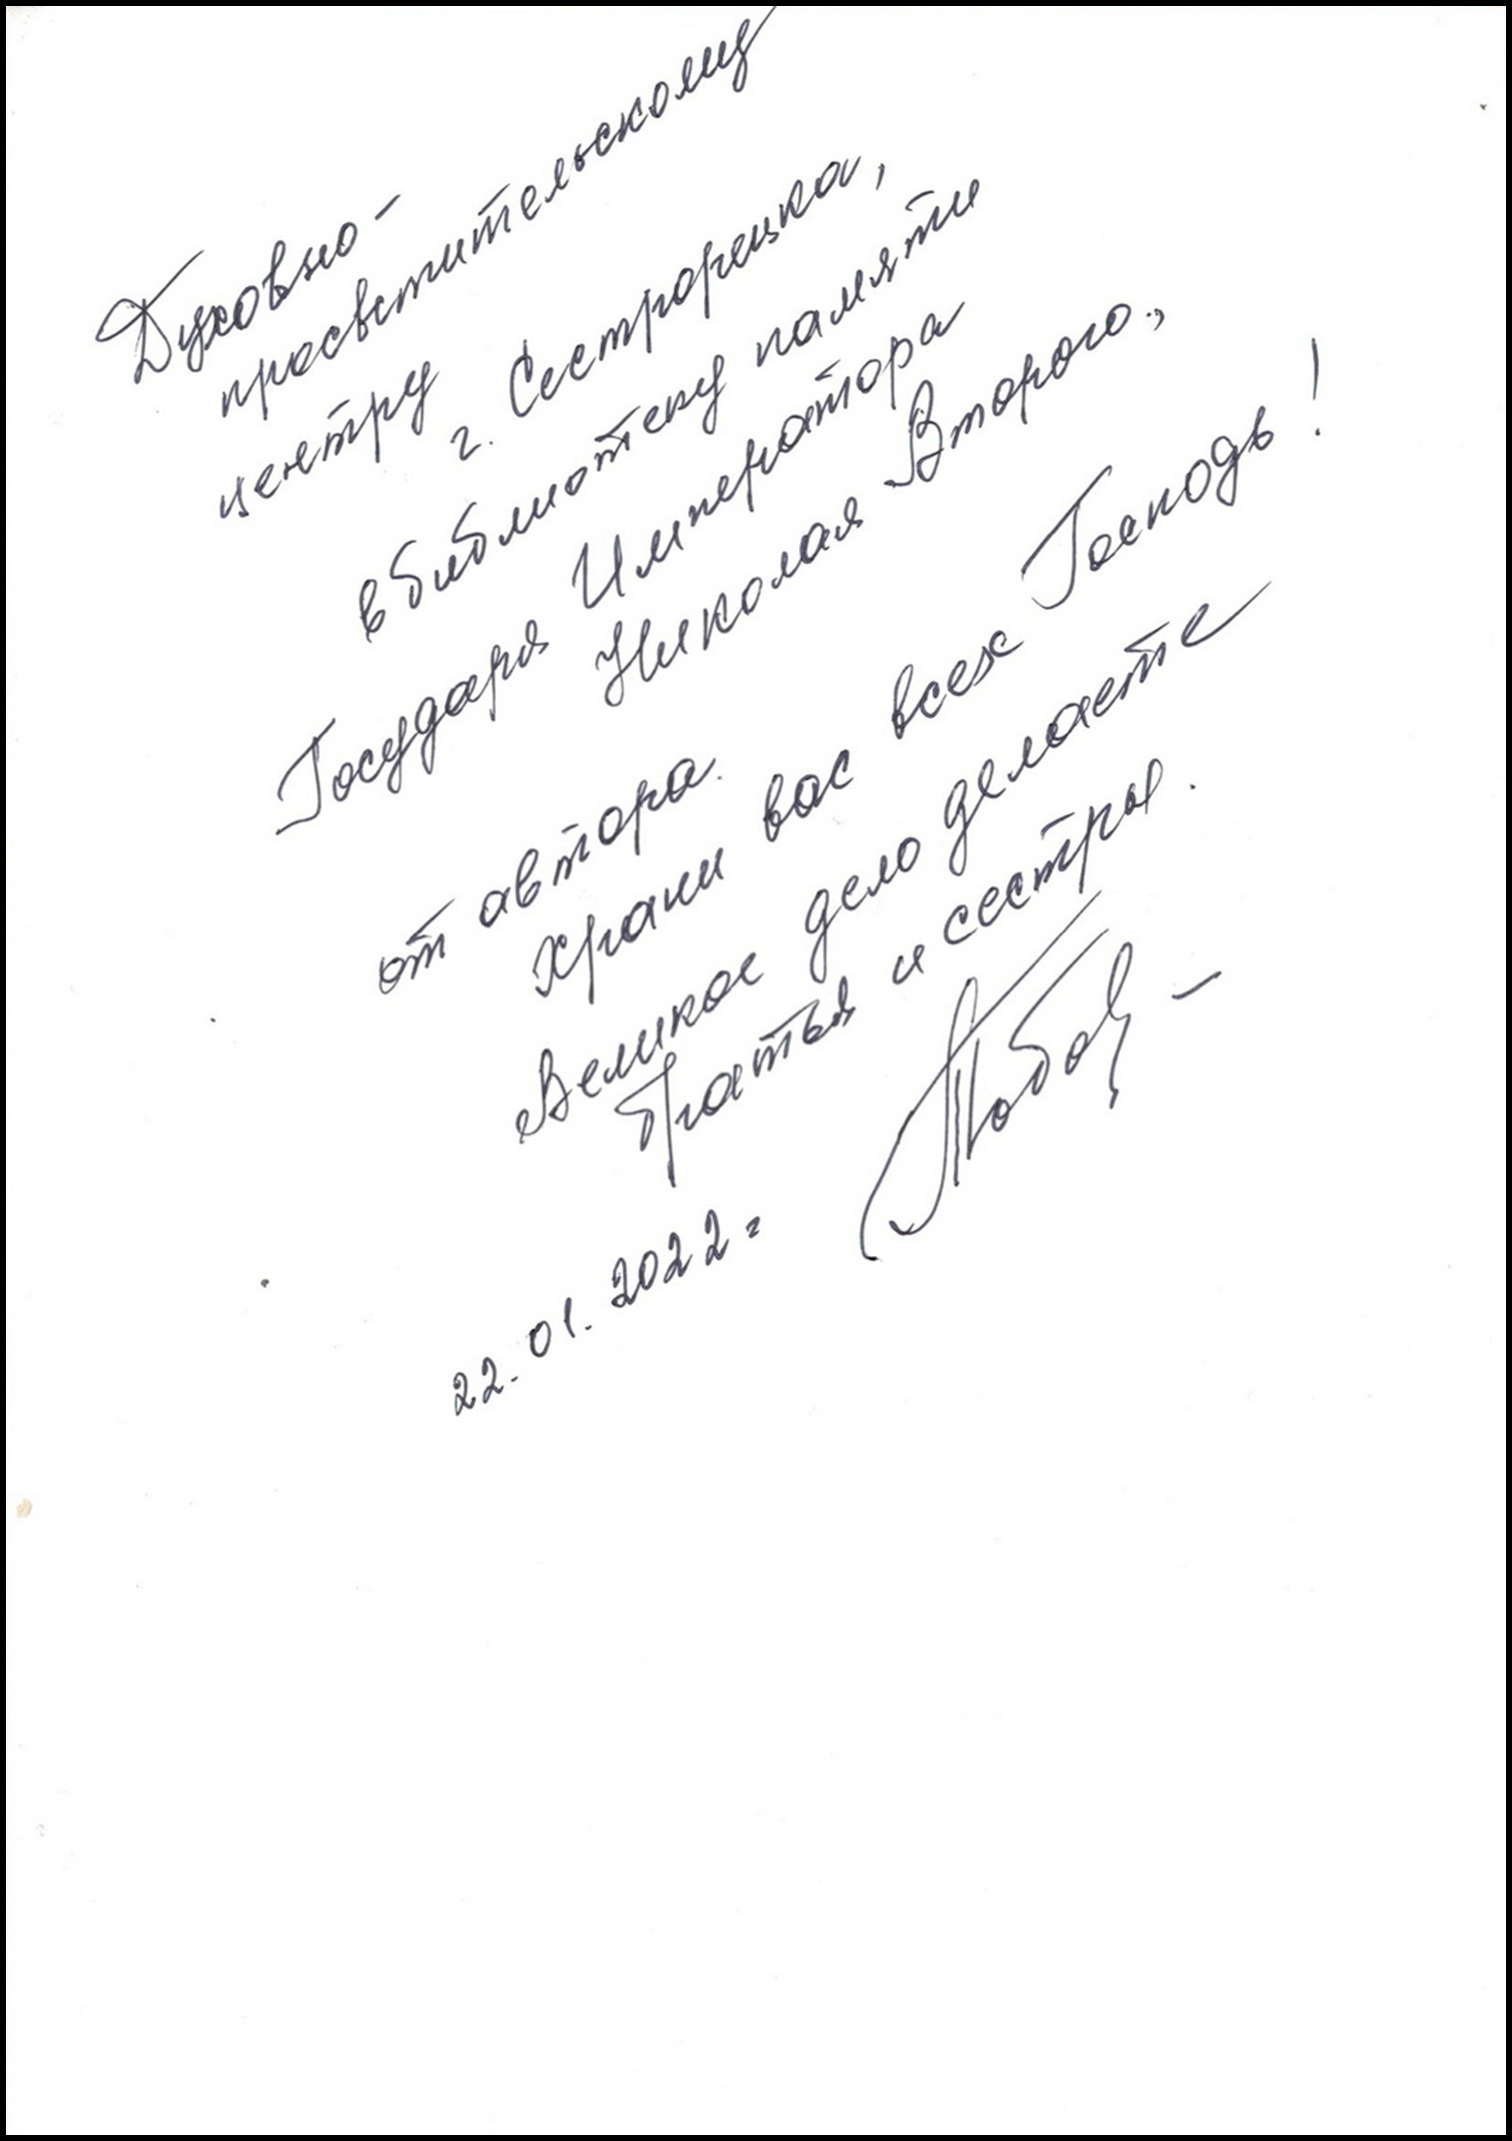 Духовно-
просвтительскому
центру
г. Сестрорецка,
в библиотеку памяти
Государя Императора
Николая Второго.,
от автора.
Храни вас всех Господь!
Великое дело делаете
братья и сестры.
22.01.2022 г